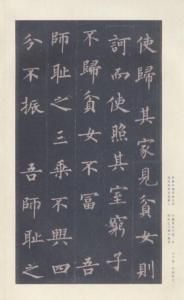 使歸其家見貧女則
訶而使照其室窮子
不歸貧女不富吾
師恥之三乘不興四
分不振吾師恥之